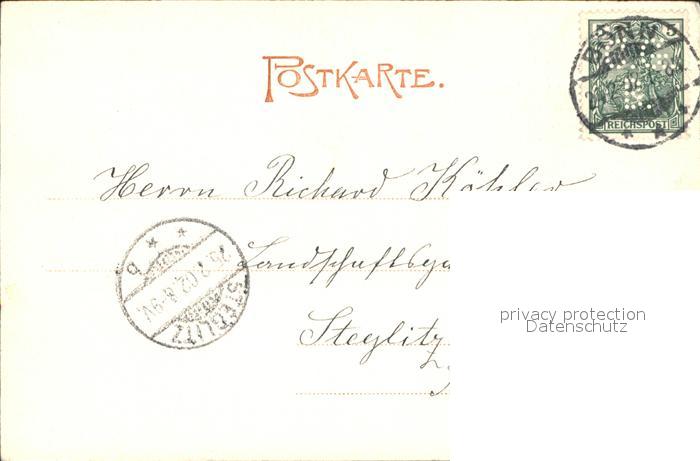 POSTKARTE.
BONN
5
REICHSPOST
Herrn Richard Köhler
Landschaftsga
Steglitz
STEGLITZ
b
privacy protection
Datenschutz